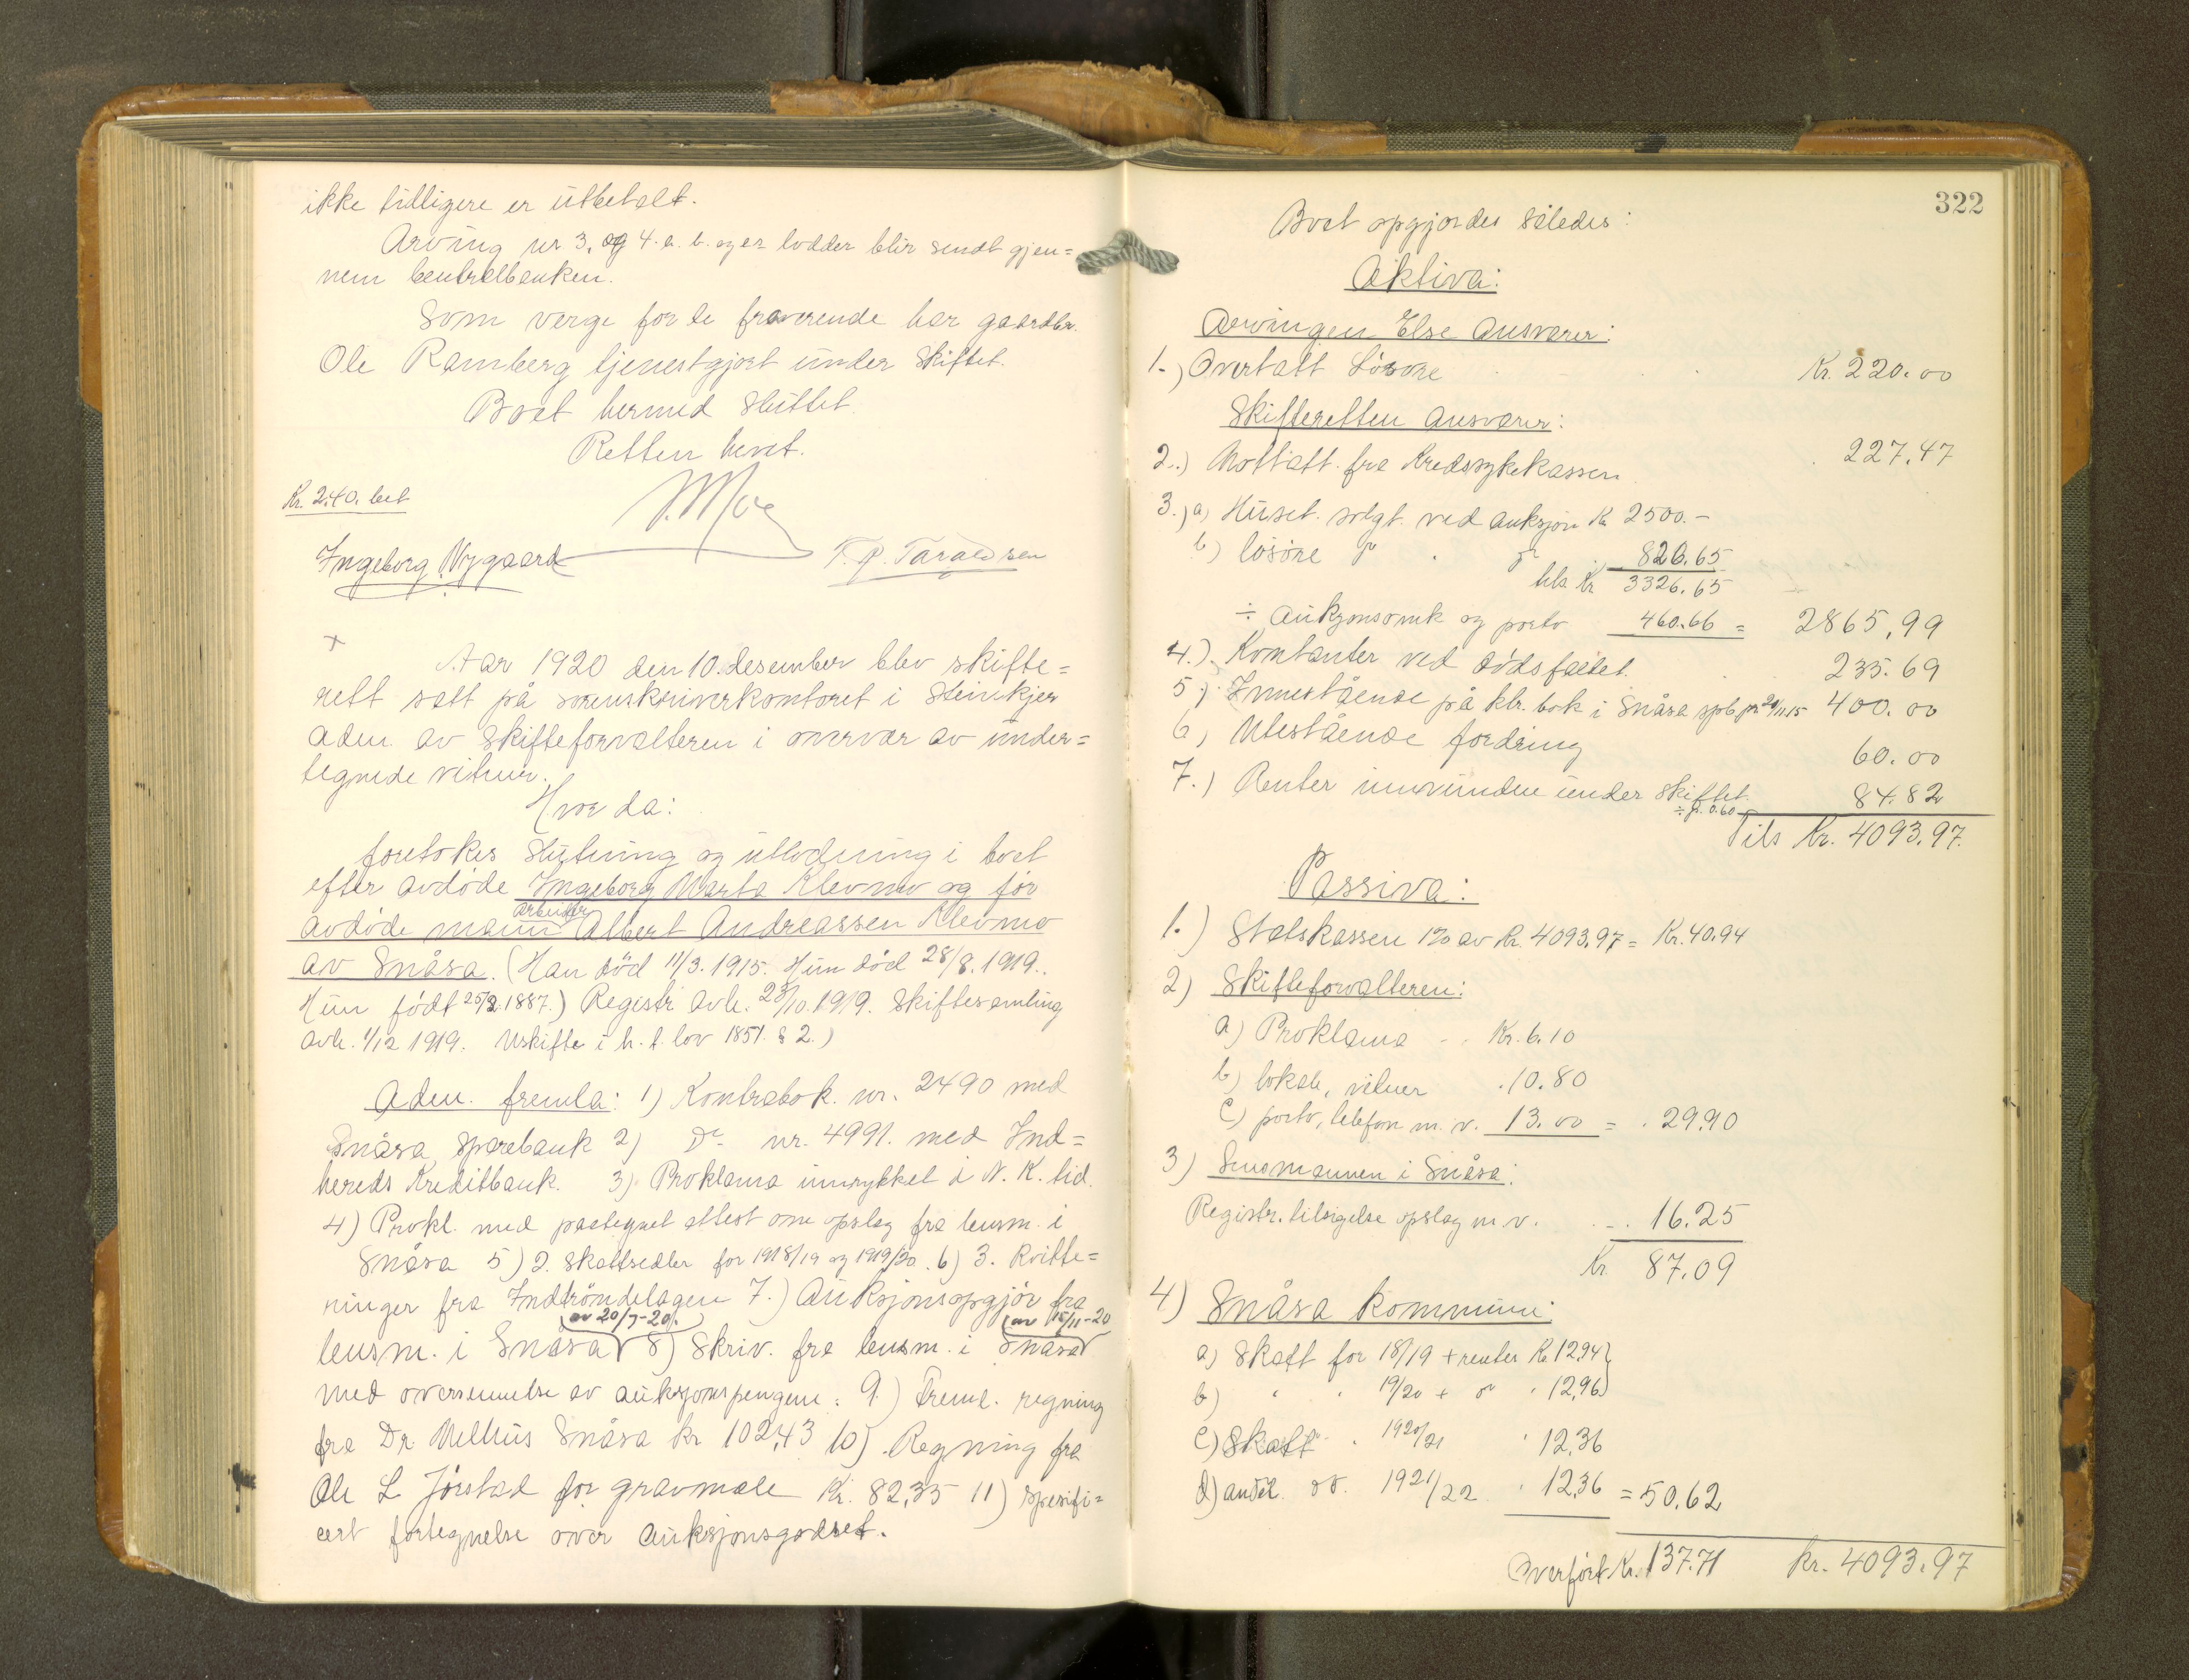 ikke tidligere er utbetalt.
Arving nr 3. og 4. a. b. og es lodder blir sendt gjen=
nem Centralbanken.
Som verge for de fraværende har gaardbr.
Ole Ramberg tjenestgjort under Skiftet.
Boet hermed Sluttet.
Retten hevet.
Kr. 2.40. bet
Ingeborg Nygaard
Aar 1920 den 10. desember blev skifte=
rett satt på sorenskriverkontoret i Steinkjer
adm. av Skifteforvalteren i overvær av under=
tegnede vitner.
Hvor da:
foretokes Slutning og utlodning i boet
efter avdøde Ingeborg Marta Klevmo og før
avdøde mann arbeider Albert Andreassen Klevmo
av Snåsa. (Han død 11/3. 1915. Hun død 28/8. 1919.
Hun født 25/3. 1887.) Registr. avh. 23/10. 1919. Skiftesamling
avh. 1/12 1919. Uskifte i h. t. lov 1851. § 2.)
Adm. fremla: 1) Kontrabok. nr. 2490 med
Snåsa Sparebank 2) Do nr. 4991. med Ind=
hereds Kreditbank. 3) Proklama innrykket i N. K. tid.
4) Prokl. med paategnet attest om opslag fra lensm. i
Snåsa 5) 2. Skattsedler for 1918/19 og 1919/20. 6) 3. Kvitte=
ninger fra Indtrøndelagen 7.) Auksjonsopgjør fra
av 20/7-20. av 15/11-20
lensm. i Snåsa 8) Skriv. fra lensm. i Snåsa
med oversennelse av auksjonspengene. 9.) Freml. regning
fra Dr. Melhus Snåsa kr 102,43 10). Regning fra
Ole L Jørstad for gravmæle Kr. 82,35 11) spesifi=
cert fortegnelse over auksjonsgodset.
322
Boet opgjordes således:
Aktiva:
Arvingen Else Ansvarer:
1.) Overtatt Løsøre Kr. 220.00
Skifteretten Ansvarer:
2.) Mottatt fra Kredssykekassen 227.47
3.) a) Huset solgt ved auksjon Kr 2500.-
b) løsøre do do 826.65
tils. Kr 3326.65
÷ auksjonsomk og porto 460.66 = 2865,99
4.) Kontanter ved dødsfallet. 235.69
5.) Innestående på ktr. bok i Snåsa spb. pr. 20/11.15 400.00
6) Utestående fordring 60.00
7.) Renter innvundne under Skiftet. 84.82
Tils Kr. 4093.97.
Passiva:
1.) Statskassen 1% av Kr. 4093.97 = Kr. 40.94
2) Skifteforvalteren:
a) Proklama Kr. 6.10
b) lokale, vitner 10.80
c) porto, telefon m. v. 13.00 = 29.90
3) Lensmannen i Snåsa:
Registr. tilsigelse opslag m. v. 16.25
Kr. 87.09
4) Snåsa kommune:
a) Skatt for 18/19 + renter Kr 12.94
b) " " 19/20 + do " 12.96
c) Skatt " 1920/21 " 12.36
d) andel do. 1921/22 " 12.36 = 50.62
Overført Kr. 137.71 kr. 4093.97